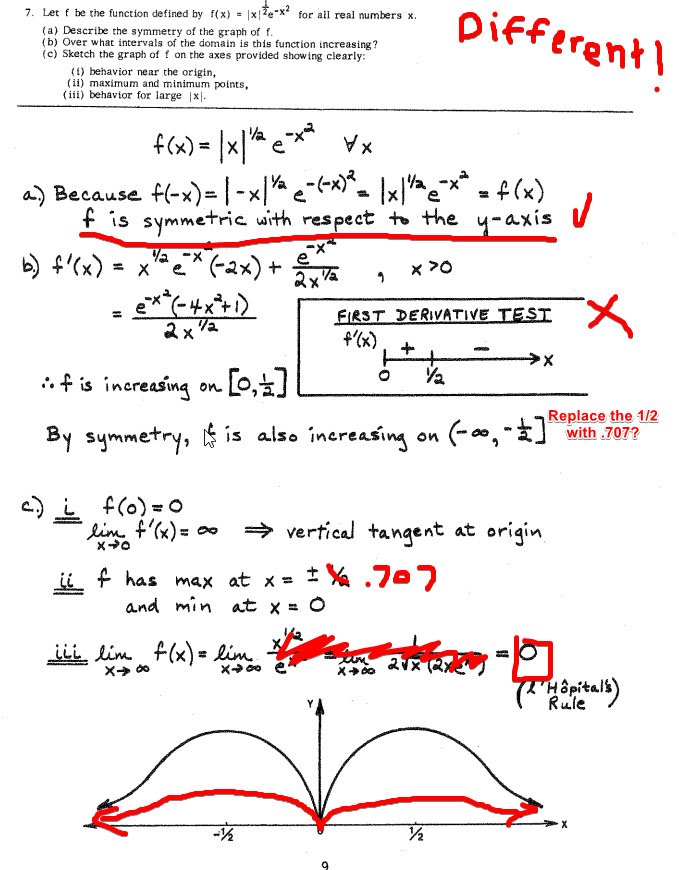 7. Let f be the function defined by f(x) = |x|^½e^-x² for all real numbers x.
Different!
(a) Describe the symmetry of the graph of f.
(b) Over what intervals of the domain is this function increasing?
(c) Sketch the graph of f on the axes provided showing clearly:
(i) behavior near the origin,
(ii) maximum and minimum points,
(iii) behavior for large |x|.
f(x) = |x|^1/2 e^-x² ∀x
a.) Because f(-x) = |-x|^1/2 e^-(-x)² = |x|^1/2 e^-x² = f(x)
f is symmetric with respect to the y-axis ✓
b.) f'(x) = x^1/2 e^-x² (-2x) + e^-x² / 2x^1/2 , x > 0
= e^-x²(-4x²+1) / 2x^1/2
FIRST DERIVATIVE TEST
f'(x) + − x
0 1/2
∴ f is increasing on [0, 1/2]
By symmetry, f is also increasing on (-∞, -1/2]
Replace the 1/2
with .707?
c.) i f(0) = 0
lim x→0 f'(x) = ∞ ⇒ vertical tangent at origin
ii f has max at x = ± .707
and min at x = 0
iii lim x→∞ f(x) = lim x→∞ x^1/2 = lim x→∞ = 0
(l'Hôpital's
Rule)
Y
X
-1/2 0 1/2
9